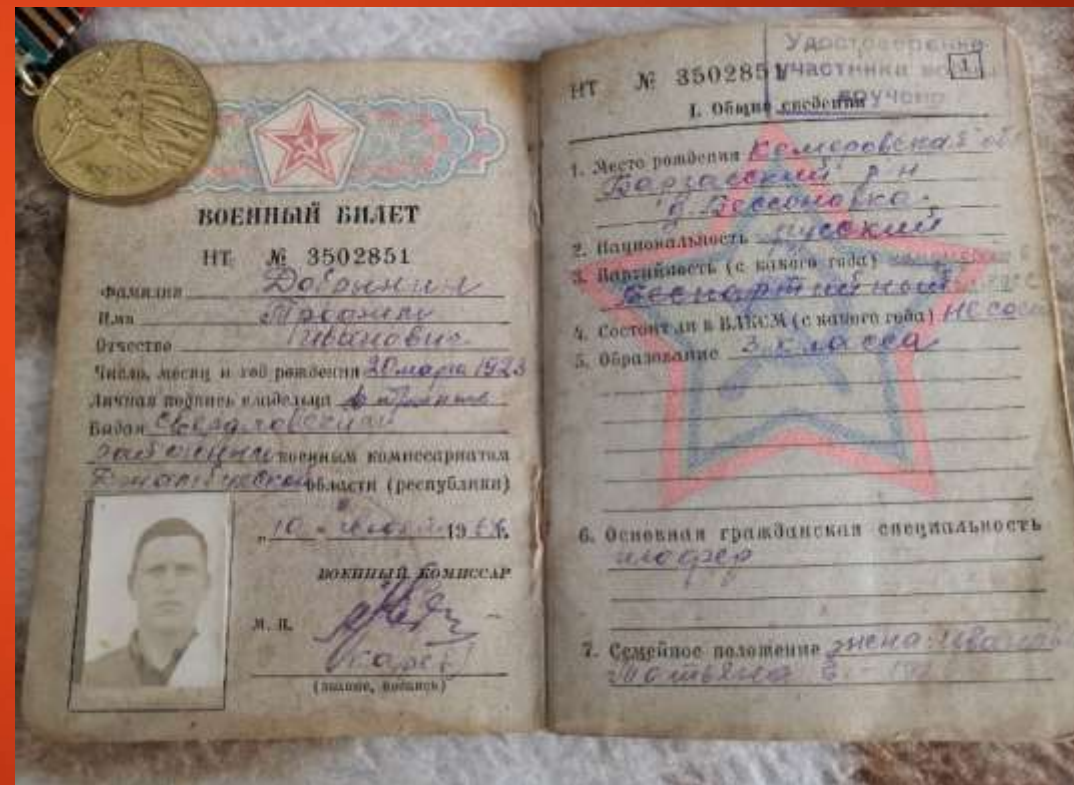 ВОЕННЫЙ БИЛЕТ
НТ № 3502851
Фамилия Добрынин
Имя
Отчество Иванович
Число, месяц и год рождения 20 марта 1923
Личная подпись владельца
Выдан Свердловским
районным военным комиссариатом
области (республики)
„ 10 “ 19 г.
ВОЕННЫЙ КОМИССАР
М. П.
(звание, подпись)
Удостоверение
участника войны
вручено
НТ № 3502851
1
I. Общие сведения
1. Место рождения Кемеровская об
Барзасский р-н
д. Бессоновка.
2. Национальность русский
3. Партийность (с какого года)
Беспартийный
4. Состоит ли в ВЛКСМ (с какого года) не сос
5. Образование 3 класса
6. Основная гражданская специальность
шофер
7. Семейное положение жена:
Татьяна